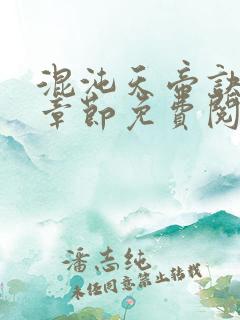 混沌天帝訣
章節免費閱
潘志纯
未经同意禁止转载